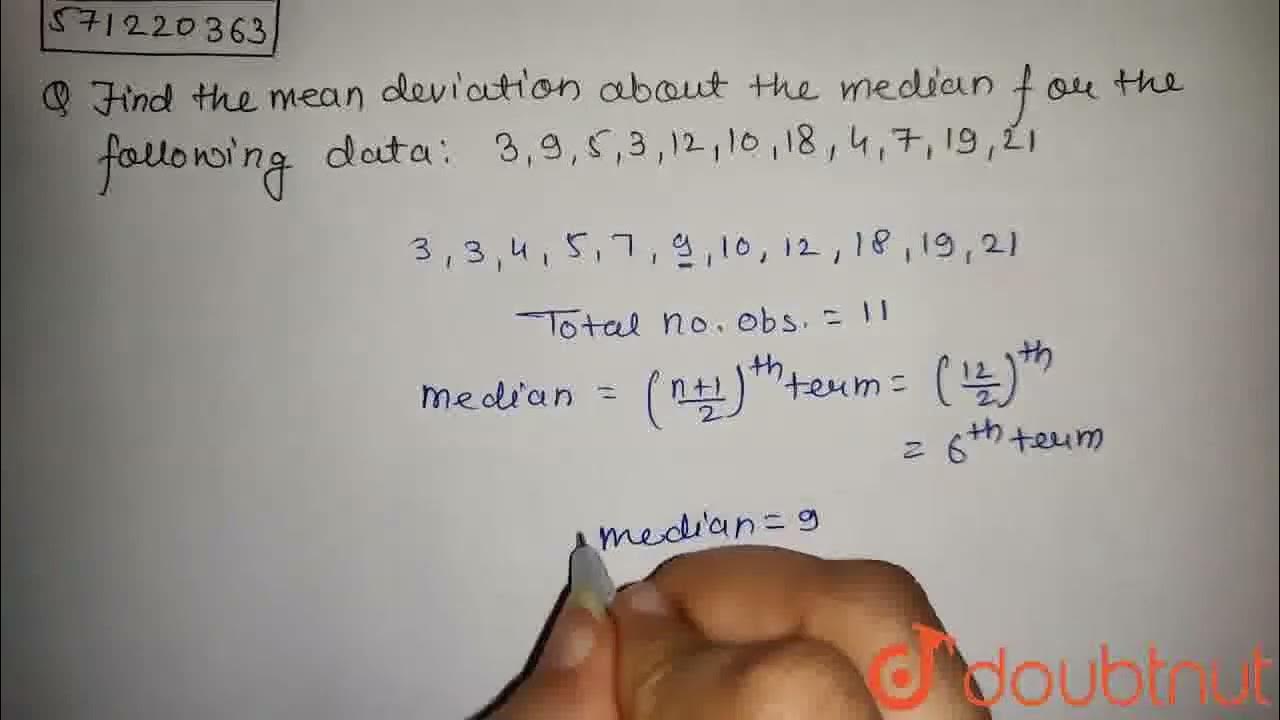 571220363
Q Find the mean deviation about the median for the
following data: 3, 9, 5, 3, 12, 10, 18, 4, 7, 19, 21
3, 3, 4, 5, 7, 9, 10, 12, 18, 19, 21
Total no. obs. = 11
median = (n+1/2)^th term = (12/2)^th
= 6^th term
median = 9
doubtnut